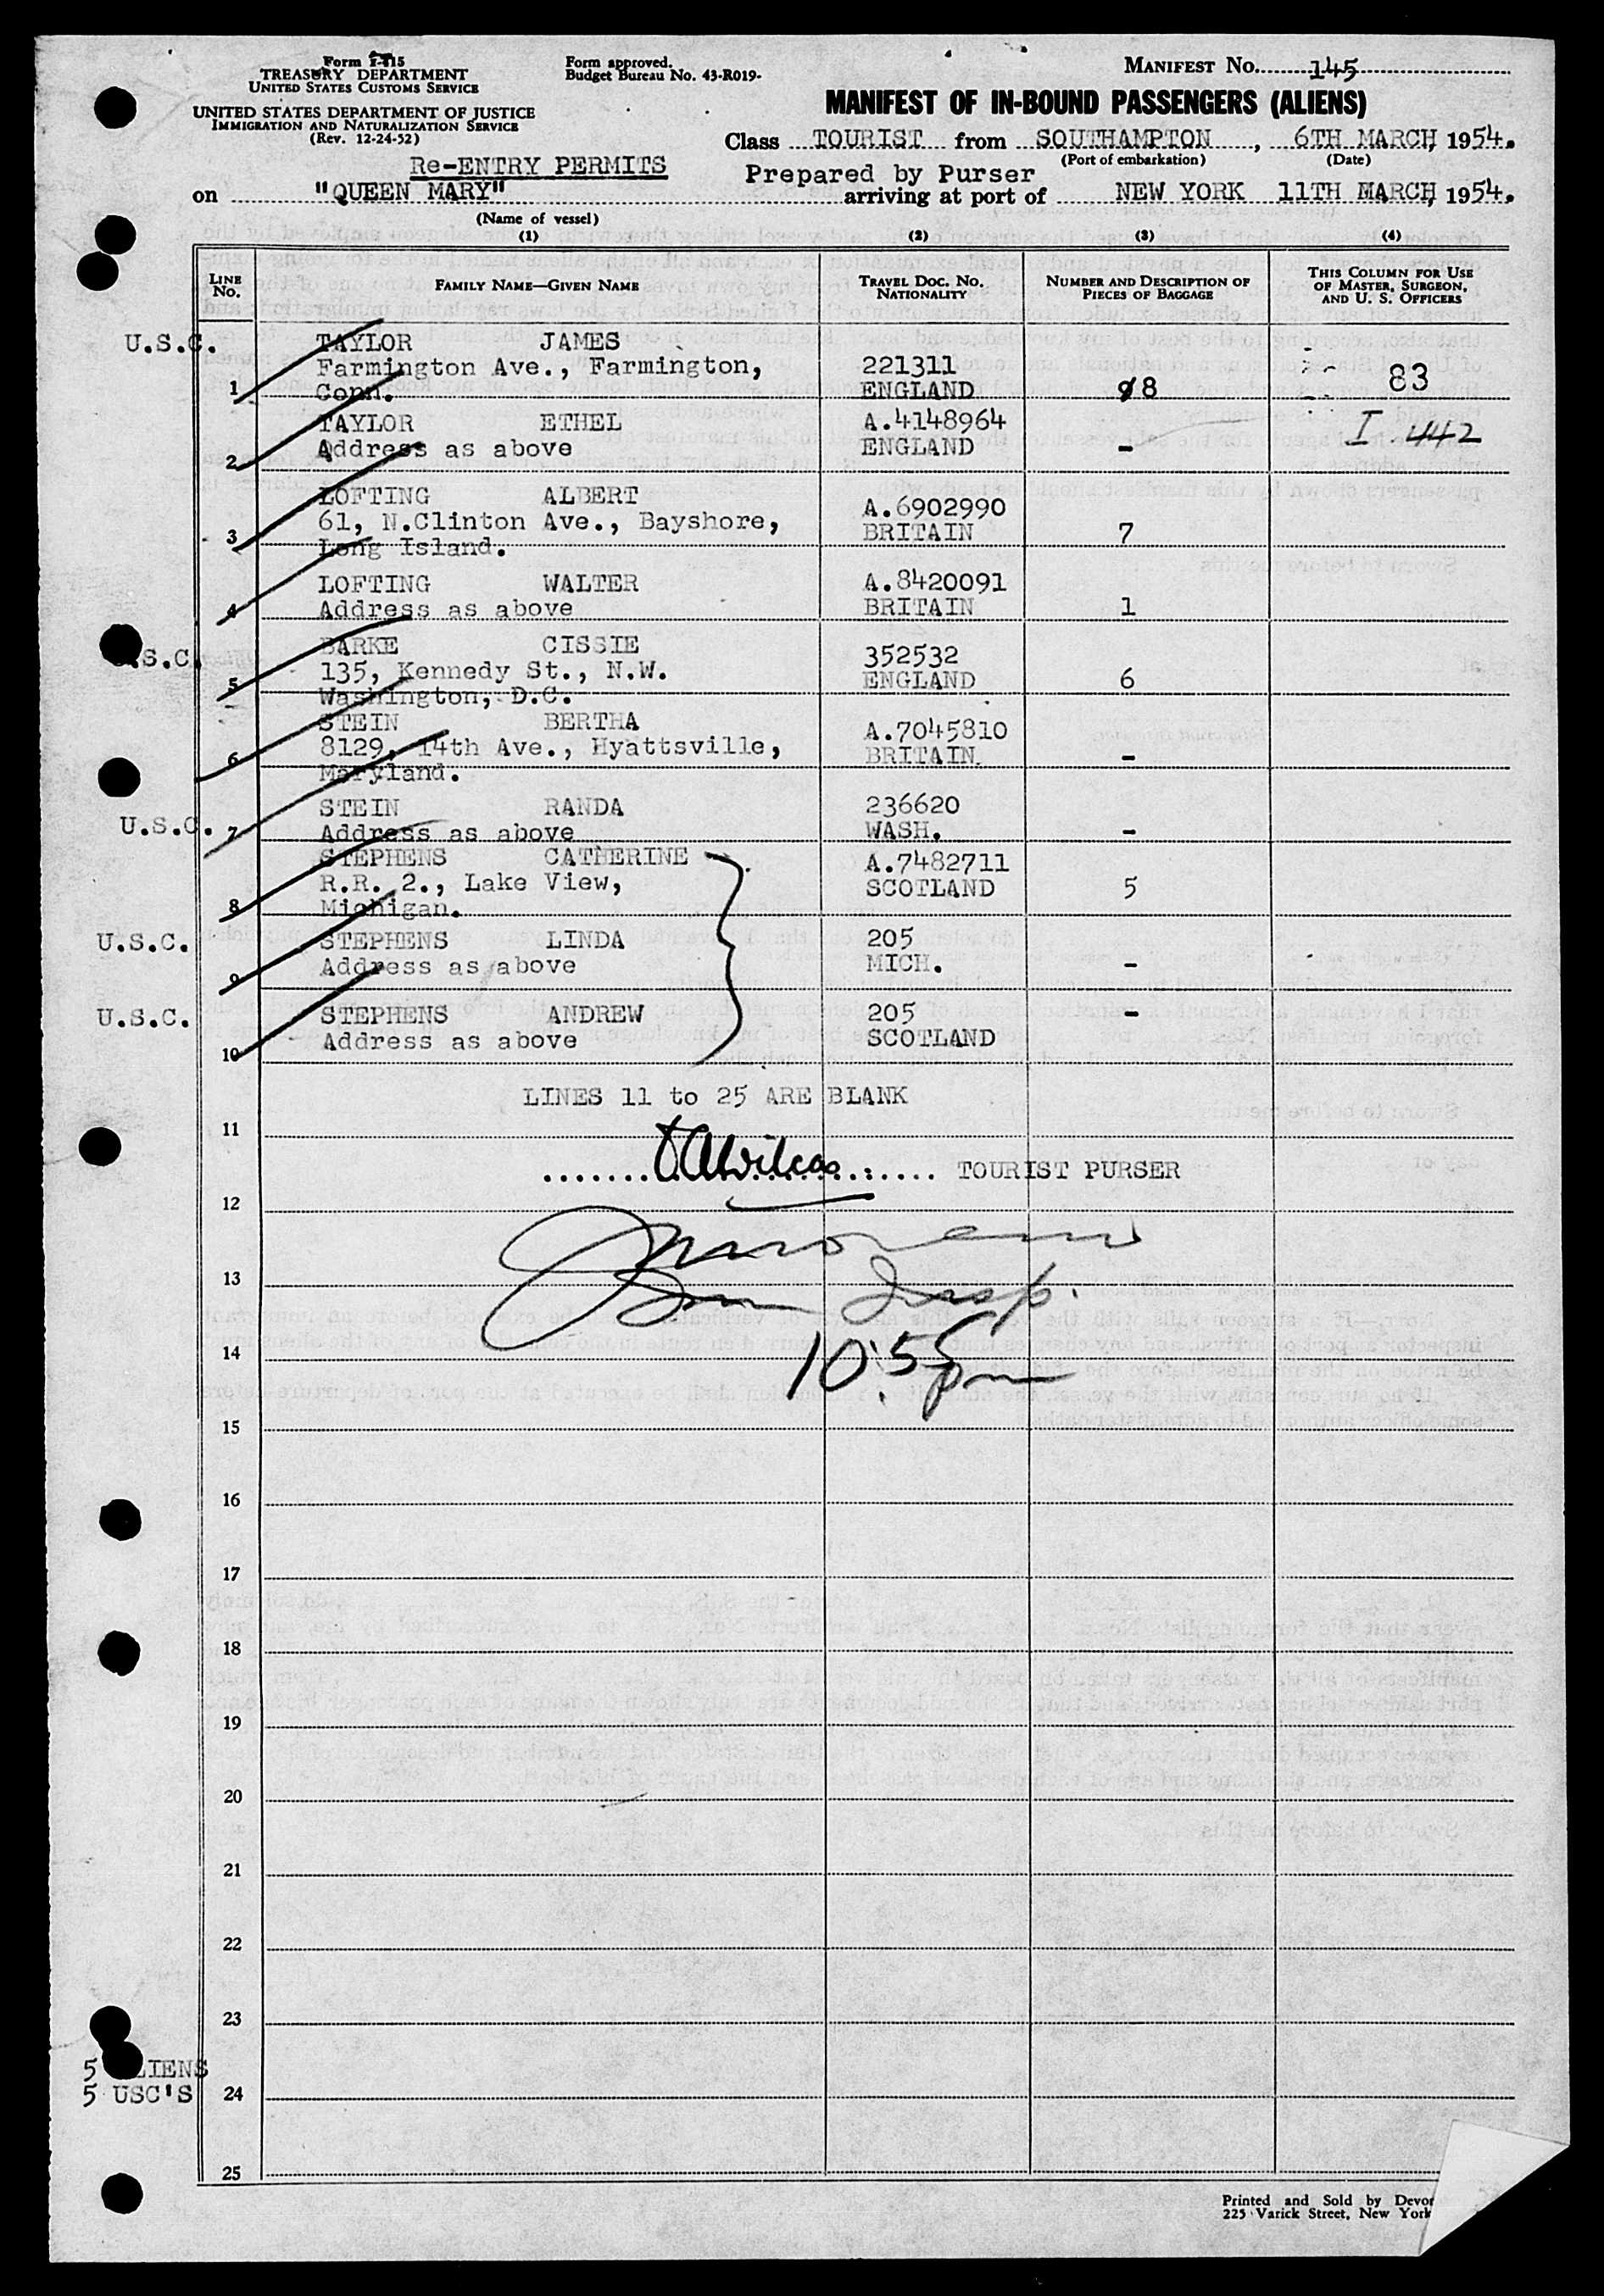 Form I-415
TREASURY DEPARTMENT
UNITED STATES CUSTOMS SERVICE
UNITED STATES DEPARTMENT OF JUSTICE
IMMIGRATION AND NATURALIZATION SERVICE
(Rev. 12-24-52)
Form approved.
Budget Bureau No. 43-R019-
MANIFEST No. 145
MANIFEST OF IN-BOUND PASSENGERS (ALIENS)
Class TOURIST from SOUTHAMPTON, 6TH MARCH, 1954.
(Port of embarkation) (Date)
Re-ENTRY PERMITS
Prepared by Purser
on "QUEEN MARY" arriving at port of NEW YORK 11TH MARCH, 1954.
(Name of vessel)
(1) (2) (3) (4)
LINE No. FAMILY NAME—GIVEN NAME TRAVEL DOC. NO. NATIONALITY NUMBER AND DESCRIPTION OF PIECES OF BAGGAGE THIS COLUMN FOR USE OF MASTER, SURGEON, AND U. S. OFFICERS
U.S.C. TAYLOR JAMES
Farmington Ave., Farmington, 221311 83
1 Conn. ENGLAND 8
TAYLOR ETHEL A.4148964 I 442
2 Address as above ENGLAND -
LOFTING ALBERT A.6902990
61, N.Clinton Ave., Bayshore, BRITAIN 7
3 Long Island.
LOFTING WALTER A.8420091
4 Address as above BRITAIN 1
U.S.C. BARKE CISSIE 352532
135, Kennedy St., N.W. ENGLAND 6
5 Washington, D.C.
STEIN BERTHA A.7045810
8129, 14th Ave., Hyattsville, BRITAIN -
6 Maryland.
STEIN RANDA 236620
U.S.C. 7 Address as above WASH. -
STEPHENS CATHERINE A.7482711
R.R. 2., Lake View, SCOTLAND 5
8 Michigan.
U.S.C. STEPHENS LINDA 205
9 Address as above MICH. -
U.S.C. STEPHENS ANDREW 205 -
10 Address as above SCOTLAND
LINES 11 to 25 ARE BLANK
11
TOURIST PURSER
12
13 Insp.
10:55 pm
14
15
16
17
18
19
20
21
22
23
5 ALIENS
5 USC'S 24
25
Printed and Sold by
225 Varick Street, New York